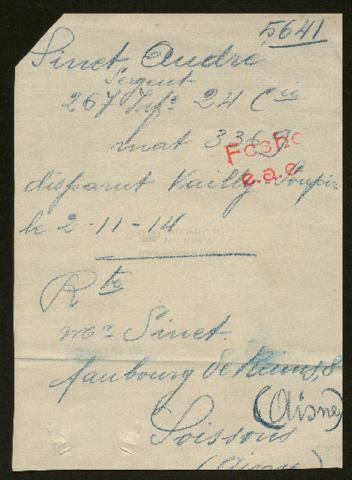 5641
Sinet André
Sergent
267 Inf^e 24 C^ie
mat 3369
Fcsho
e.a.c.
disparut Vailly-Soupir
le 2-11-14
PATRIMONIO
NACIONAL
R^te
M^r Sinet.
faubourg de Reims, 8
(Aisne)
Soissons
(Aisne)